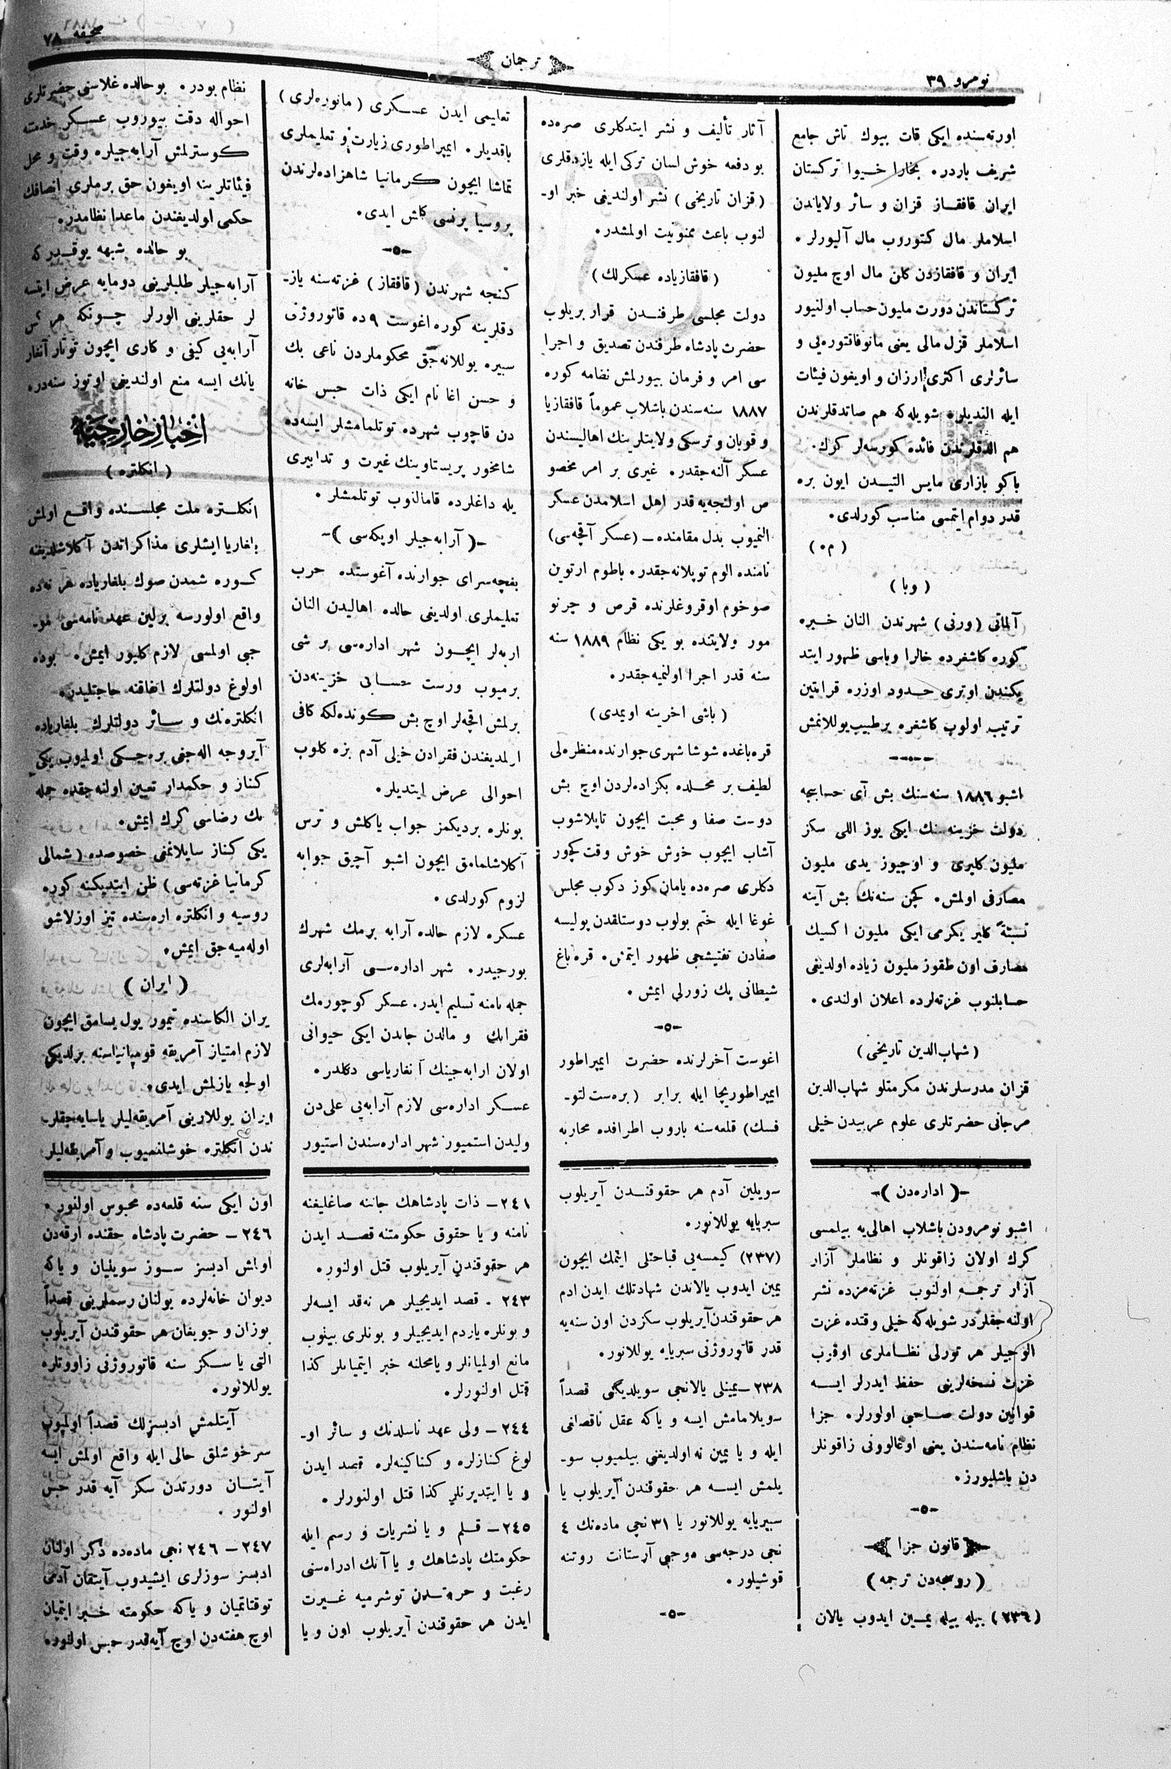 نومرو ٣٩
ترجمان
صحیفه ٧٨
اورته‌سنده ایکی قات بیوك تاش جامع
شریف باردر. بخارا خیوا ترکستان
ایران قافقاز قزان و سائر ولایاتدن
اسلاملر مال کتوروب مال آلیورلر.
ایران و قافقازدن کلن مال اوچ ملیون
ترکستاندن دورت ملیون حساب اولنیور
اسلاملر قزل مالی یعنی مانوفاقتوره‌یی و
سائرلری اکثری ارزان و اویغون فیئات
ایله الندیلر. شویله‌که هم صاتدقلرندن
هم الدقلرندن فائده کورسه‌لر کرك.
باکو بازاری مایس التیدن ایون بره
قدر دوام ایتمسی مناسب کورلدی.
(م.ه)
(وبا)
آلماتی (ورنی) شهرندن النان خبره
کوره کاشغرده خالرا وباسی ظهور ایتد
یکندن اوتری حدود اوزره قرانتین
ترتیب اولوب کاشغره بر طبیب یوللانمش
اشبو ١٨٨٦ سنه‌سنك بش آی حسابیجه
دولت خزینه‌سنك ایکی یوز اللی سکز
ملیون کلیری و اوچیوز یدی ملیون
مصارفی اولمش. کچن سنه‌نك بش آینه
نسبةً کلیر یکرمی ایکی ملیون اکسیك
مصارف اون طقوز ملیون زیاده اولدیغی
حسابلنوب غزته‌لرده اعلان اولندی.
(شهاب‌الدین تاریخی)
قزان مدرسلرندن مکرمتلو شهاب‌الدین
مرجانی حضرتلری علوم عربیدن خیلی
آثار تألیف و نشر ایتدکلری صره‌ده
بو دفعه خوش لسان ترکی ایله یازدقلری
(قزان تاریخی) نشر اولندیغی خبر او-
لنوب باعث ممنونیت اولمشدر.
(قافقازیاده عسکرلك)
دولت مجلسی طرفندن قرار بریلوب
حضرت پادشاه طرفندن تصدیق و اجرا
سی امر و فرمان بیورلمش نظامه کوره
١٨٨٧ سنه‌سندن باشلاب عموماً قافقازیا
و قوبان و ترسکی ولایتلرینك اهالیسندن
عسکر آلنه‌جقدر. غیری بر امر مخصو
ص اولنجه‌یه قدر اهل اسلامدن عسکر
النمیوب بدل مقامنده - (عسکر آقچه‌سی)
نامنده الوم توپلانه‌جقدر. باطوم ارتوین
صوخوم اوقروغلرنده قرص و چرنو
مور ولایتنده بو یکی نظام ١٨٨٩ سنه
سنه قدر اجرا اولنمیه‌جقدر.
(باشی اخرینه اویمدی)
قره‌باغده شوشا شهری جوارنده منظره‌لی
لطیف بر محلده بکزاده‌لردن اوچ بش
دوست صفا و محبت ایچون تاپلاشوب
آشاب ایچوب خوش خوش وقت کچور
دکلری صره‌ده یامان کوز دکوب مجلس
غوغا ایله ختم بولوب دوستلقدن پولیسه
صفادن تفتیشجی ظهور ایتمش. قره‌باغ
شیطانی پك زورلی ایمش.
اغوست آخرلرنده حضرت ایمپراطور
ایمپراطوریچا ایله برابر (بره‌ست لتو-
فسك) قلعه‌سنه باروب اطرافده محاربه
تعلیمی ایدن عسکری (مانوره‌لری)
باقدیلر. ایمپراطوری زیارت و تعلیملری
تماشا ایچون کرمانیا شاهزاده‌لرندن
پروسیا پرنسی کلمش ایدی.
کنجه شهرندن (قافقاز) غزته‌سنه یاز-
دقلرینه کوره اغوست ٩ده قاتورژنی
سبیره یوللانه‌جق محکوملردن ناعی بك
و حسن اغا نام ایکی ذات حبس خانه
دن قاچوب شهرده توتلمامشلر ایسه‌ده
شامخور پریستاوینك غیرت و تدابیری
یله داغلرده قامالنوب توتلمشلر.
-(آرابه‌جیلر اوپکه‌سی)-
بغچه‌سرای جوارنده آغوستده حرب
تعلیملری اولدیغی حالده اهالیدن النان
اربه‌لر ایچون شهر اداره‌سی بر شی
برمیوب ورست حسابی خزینه‌دن
برلمش اقچه‌لر اوچ بش کونده‌لکه کافی
ارلمدیغندن فقرادن خیلی آدم بزه کلوب
احوالی عرض ایتدیلر.
بونلره بردیکمز جواب یاکلش و ترس
آکلاشلمامق ایچون اشبو آچیق جوابه
لزوم کورلدی.
عسکره لازم حالده آرابه برمك شهرك
بورجیدر. شهر اداره‌سی آرابه‌لری
جمله نامنه تسلیم ایدر. عسکر کوچورمك
فقرانك و مالدن جاندن ایکی حیوانی
اولان ارابه‌جینك آنغاریاسی دکلدر.
عسکر اداره‌سی لازم آرابه‌یی علی‌دن
ولیدن استمیور شهر اداره‌سندن استیور
نظام بودر. بو حالده غلاسنی حضرتلری
احواله دقت بیوروب عسکر خدمته
کوسترلمش آرابه‌جیلره وقت و محل
فیئاتلرینه اویغون حق برملری انصافك
حکمی اولدیغندن ماعدا نظامدر.
بو حالده شبهه یوقدیر که
آرابه‌جیلر طلبلرینی دومایه عرض ایتسه
لر حقلرینی الورلر چونکه هر کس
آرابه‌یی کیفی و کاری ایچون توتار آنغار
یانك ایسه منع اولندیغی اوتوز سنه‌در.
اخبار خارجیه
(انکلتره)
انکلتره ملت مجلسنده واقع اولمش
بلغاریا ایشلری مذاکراتدن آکلاشلدیغنه
کوره شمدن صوك بلغاریاده هر نه‌ده
واقع اولورسه برلین عهد نامه‌سی مو-
جی اولمسی لازم کلیور ایمش. بوده
اولوغ دولتلرك اتفاقنه حاجتلیدر.
انکلتره‌نك و سائر دولتلرك بلغاریاده
آیروجه اله‌جغی بره‌جکی اولمیوب یکی
کناز و حکمدار تعیین اولنه‌جقده جمله
نك رضاسی کرك ایمش.
یکی کناز سایلانمغی خصوصده (شمالی
کرمانیا غزته‌سی) ظن ایتدیکنه کوره
روسیه و انکلتره اره‌سنده تیز اوزلاشو
اوله‌میه‌جق ایمش.
(ایران)
یران الکاسنده تیمور یول یسامق ایچون
لازم امتیاز آمریقه قومپانیاسنه برلدیکی
اولجه یازلمش ایدی.
ایران یوللارینی آمریقه‌لیلر یاسایه‌جقلر
ندن انکلتره خوشلنمیوب و آمریقه‌لیلر
-(اداره‌دن)-
اشبو نومرودن باشلاب اهالی‌یه بیلمسی
کرك اولان زاقونلر و نظاملر آزار
آزار ترجمه اولنوب غزته‌مزده نشر
اولنه‌جقلردر شویله‌که خیلی وقتده غزت
الوجیلر هر تورلی نظاملری اوقیوب
غزت نسخه‌لرینی حفظ ایدرلر ایسه
قوانین دولت صاحبی اولورلر. جزا
نظام نامه‌سندن یعنی اوغالوونی زاقونلر
دن باشلیورز.
قانون جزا
(روسجه‌دن ترجمه)
(٢٣٦) بیله بیله یمین ایدوب یالان
سویلین آدم هر حقوقندن آیریلوب
سبریایه یوللانور.
(٢٣٧) کیمسه‌یی قباحتلی ایتمك ایچون
یمین ایدوب یالاندن شهادتلك ایدن ادم
هر حقوقندن آیریلوب سکزدن اون سنه‌یه
قدر قاتورژنی سبریایه یوللانور.
٢٣٨- یمینلی یالانجی سویلدیگی قصداً
سویلامامش ایسه و یاکه عقل ناقصلغی
ایله و یا یمین نه اولدیغنی بیلمیوب سو-
یلمش ایسه هر حقوقندن آیریلوب یا
سبریایه یوللانور یا ٣١ نجی ماده‌نك ٤
نجی درجه‌سی موجبی آرستانت روتنه
قوشیلور.
٢٤١- ذات پادشاهك جاننه صاغلیغنه
نامنه و یا حقوق حکومتنه قصد ایدن
هر حقوقندن آیریلوب قتل اولنور.
٢٤٣- قصد ایدیجیلر هر نه‌قد ایسه‌لر
و بونلره یاردم ایدیجیلر و بونلری بیلوب
مانع اولمیانلر و یا محلنه خبر ایتمیانلر کذا
قتل اولنورلر.
٢٤٤- ولی عهد ناسلدنك و سائر او-
لوغ کنازلره و کناکینه‌لره قصد ایدن
و یا ایتدیرنلر کذا قتل اولنورلر.
٢٤٥- قلم و یا نشریات و رسم ایله
حکومتك پادشاهك و یا آنك ادراه‌سنی
رغبت و حرمتدن توشرمیه غیرت
ایدن هر حقوقندن آیریلوب اون و یا
اون ایکی سنه قلعه‌ده محبوس اولنور.
٢٤٦- حضرت پادشاه حقنده ارقه‌دن
اولمش ادبسز سوز سویلیان و یاکه
دیوان خانه‌لرده بولنان رسملرینی قصداً
بوزان و جویغان هر حقوقندن آیریلوب
التی یا سکز سنه قاتورژنی زاووتلره
یوللانور.
آیتلمش ادبسزلك قصداً اولمیوب
سرخوشلق حالی ایله واقع اولمش ایسه
آیتان دورتدن سکز آیه قدر حبس
اولنور.
٢٤٧- ٢٤٦ نجی ماده‌ده ذکر اولنان
ادبسز سوزلری ایشیدوب آیتقان آدمی
توقتاتمیان و یاکه حکومته خبر ایتمیان
اوچ هفته‌دن اوچ آیه‌قدر حبس اولنور.